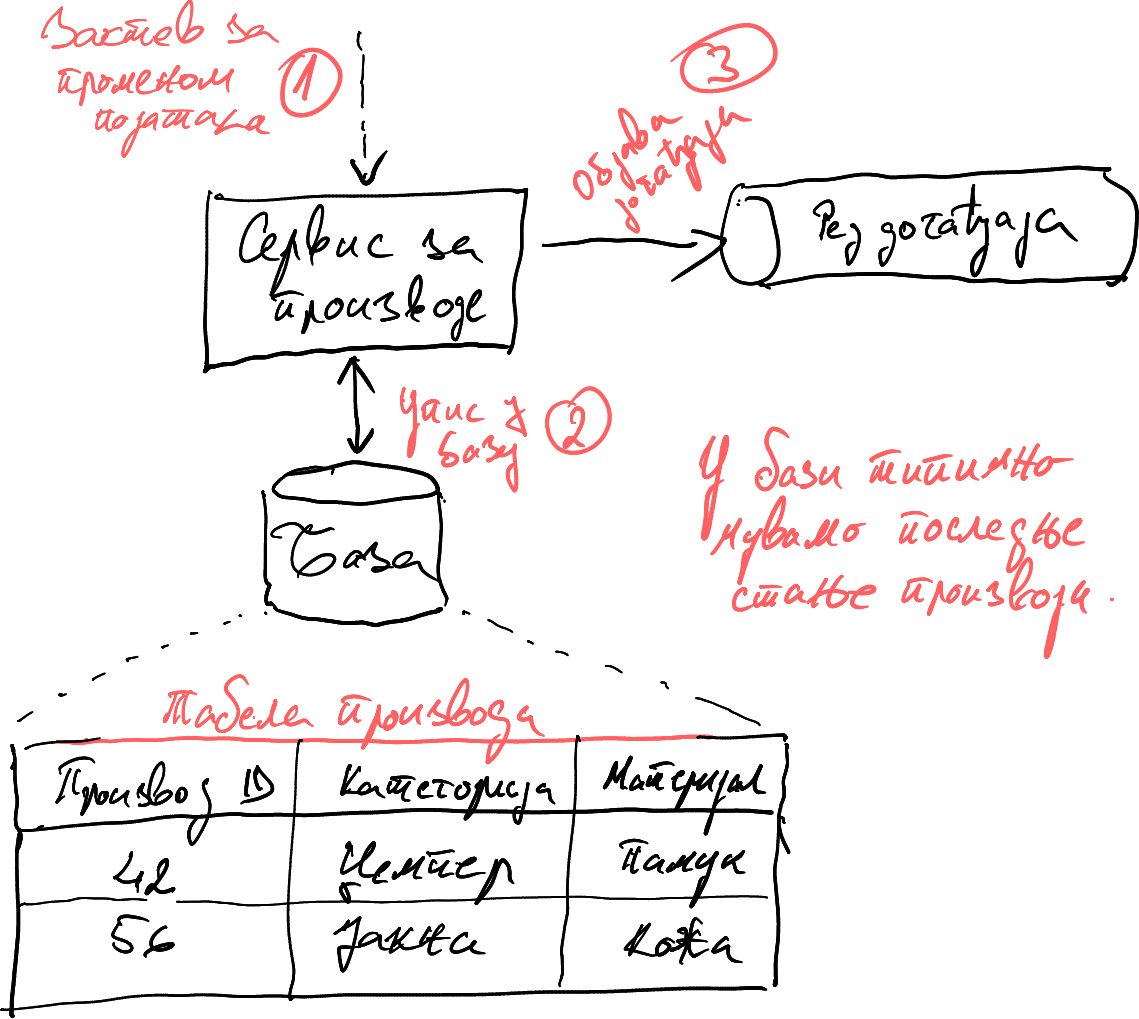 Захтев за
променом
података
1
3
Објава
догађаја
Сервис за
производе
Ред догађаја
Упис у
базу
2
База
У бази типично
чувамо последње
стање производа.
Табела производа
Производ ID
Категорија
Материјал
42
Џемпер
Памук
56
Јакна
Кожа